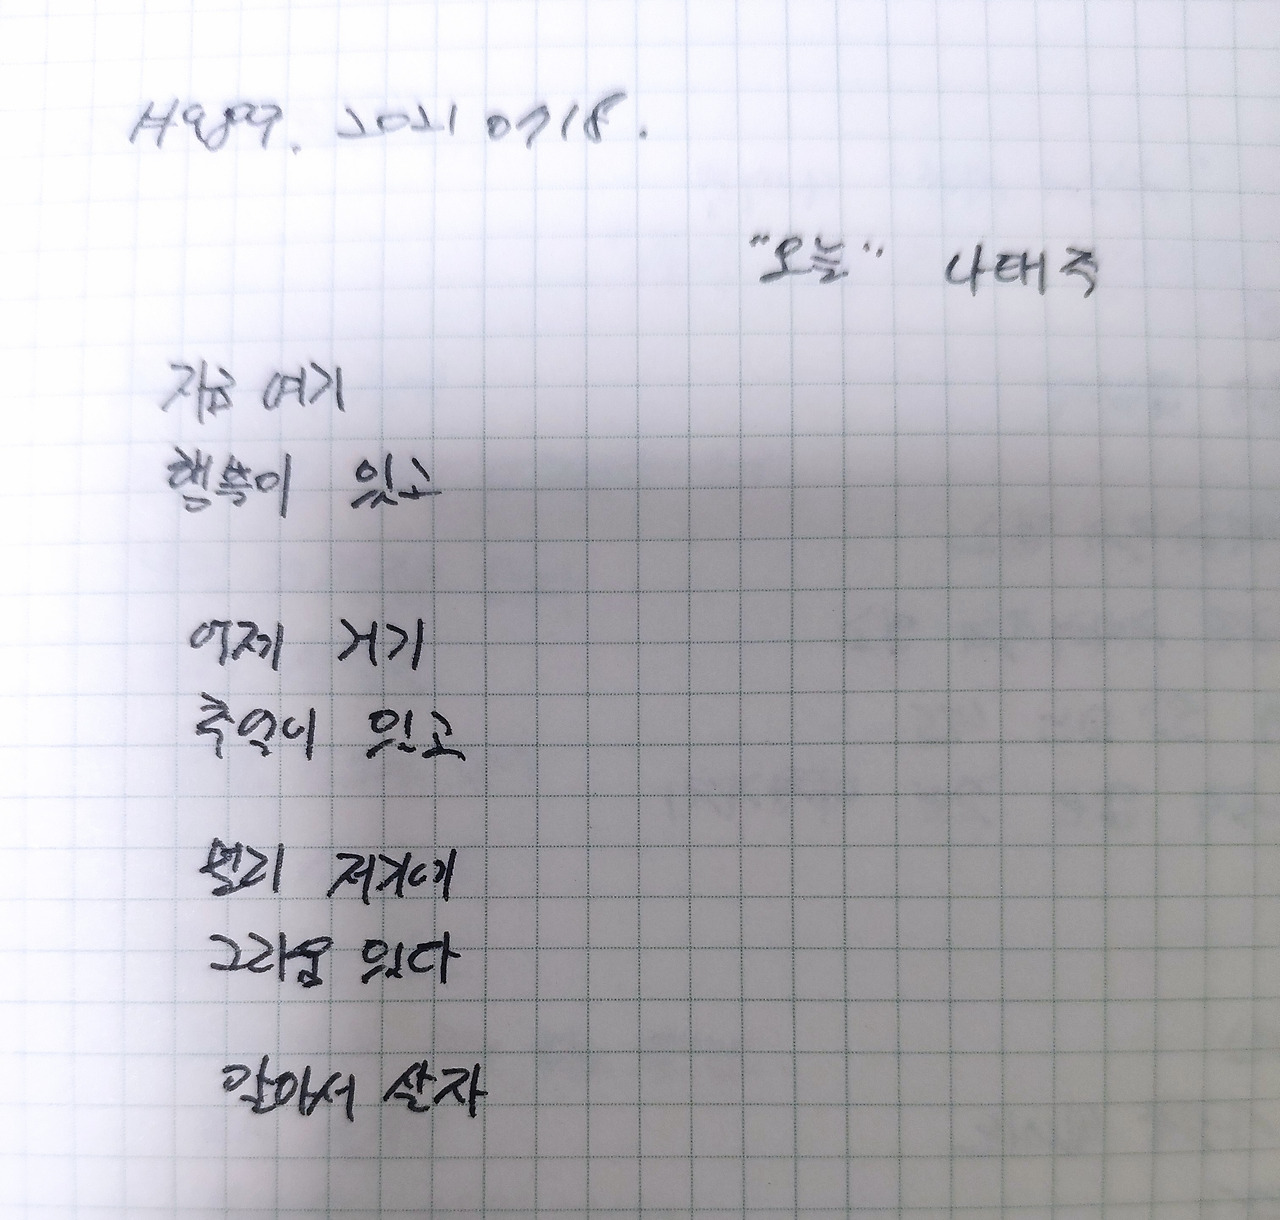 H909. 2021 0718.
"오늘" 나태주
지금 여기
행복이 있고
어제 거기
추억이 있고
멀리 저기에
그리움 있다
알아서 살자